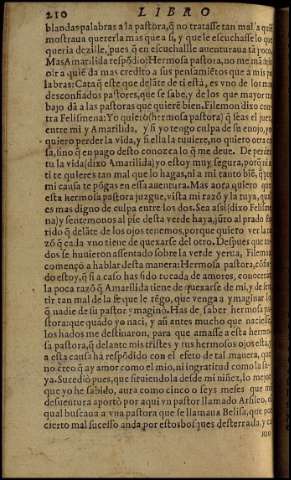 210 LIBRO
blandas palabras a la pastora, q̃ no tratasse tan mal a quiẽ
mostraua quererla mas que a si, y que le escuchasse lo que
queria dezille, pues q̃ en escuchallle auenturaua tã poco.
Mas Amarilda respõdio: Hermosa pastora, no me mã
oir a quiẽ da mas credito a sus pensamiẽtos que a mis pa
labras: Cata q̃ este que delãte de ti està, es vno de los mas
desconfiados pastores, que se sabe, y de los que mayor tra
bajo dã a las pastoras que quierẽ bien. Filemon dixo con-
tra Felismena: Yo quiero (hermosa pastora) q̃ seas el juez
entre mi y Amarilida, y si yo tengo culpa de su enojo, yo
quiero perder la vida, y si ella la tuuiere, no quiero otra co
sa, sino q̃ en pago desto conozca lo q̃ me deue. De perder
tu la vida (dixo Amarilida) yo estoy muy segura, porq̃ ni a
ti te quieres tan mal que lo hagas, ni a mi tanto biẽ, q̃ por
mi causa te põgas en essa auentura. Mas aora quiero que
esta hermosa pastora juzgue, vista mi razõ y la tuya, qual
es mas digno de culpa entre los dos. Sea assi (dixo Felisme
na) y sentemonos al pie desta verde haya, jũto al prado flo
rido q̃ delãte de los ojos tenemos, porque quiero ver la ra
zõ q̃ cada vno tiene de quexarse del otro. Despues que to
dos se huuieron assentado sobre la verde yerua, Filemon
començò a hablar desta manera: Hermosa pastora, cõfia
do estoy, q̃ si a caso has sido tocada, de amores, conoceras
la poca razõ q̃ Amarilida tiene de quexarse de mi, y de sen
tir tan mal de la fe que le tẽgo, que venga a ymaginar lo
q̃ nadie de su pastor ymaginò. Has de saber hermosa pas
tora: que quãdo yo naci, y aũ antes mucho que naciesse,
los hados me destinaron, para que amasse a esta hermo-
sa pastora, q̃ delante mis tristes y tus hermosos ojos està, y
a esta causa ha respõdido con el efeto de tal manera, que
no creo q̃ ay amor como el mio, ni ingratitud como la su-
ya. Sucediò pues, que siruiendola desde mi niñez, lo mejor
que yo he sabido, aura como cinco o seys meses que mi
desuentura aportò por aqui vn pastor llamado Arsileo, el
qual buscaua a vna pastora que se llamaua Belisa, que por
cierto mal sucesso anda por estos bosques desterrada, y co